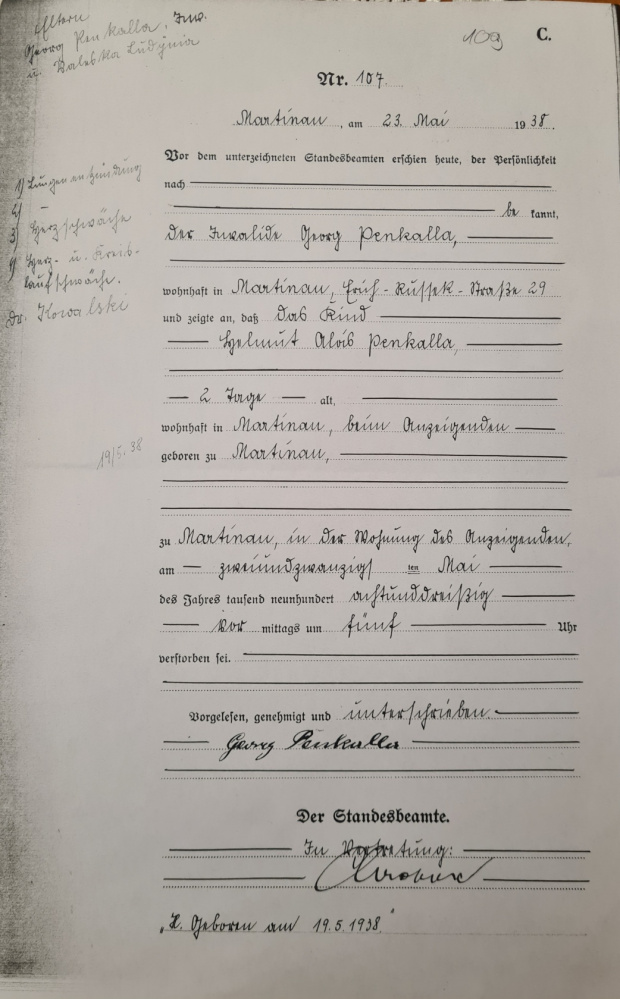 Eltern
Georg Penkalla, Inv.
u. Valeska Ludynia
109
C.
Nr. 107.
Martinau, am 23. Mai 1938.
Vor dem unterzeichneten Standesbeamten erschien heute, der Persönlichkeit
nach
be kannt,
der Invalide Georg Penkalla,
wohnhaft in Martinau, Erich-Russek-Straße 29
und zeigte an, daß das Kind
Helmut Alois Penkalla,
2 Tage alt,
wohnhaft in Martinau, beim Anzeigenden
geboren zu Martinau,
zu Martinau, in der Wohnung des Anzeigenden,
am zweiundzwanzigs ten Mai
des Jahres tausend neunhundert achtunddreißig
vor mittags um fünf Uhr
verstorben sei.
Vorgelesen, genehmigt und unterschrieben.
Georg Penkalla
Der Standesbeamte.
In Vertretung:
„K. Geboren am 19.5.1938."
1) Lungenentzündung
2) -
3) Herzschwäche
4) Herz- u. Kreis-
laufschwäche.
Dr. Kowalski
19/5.38